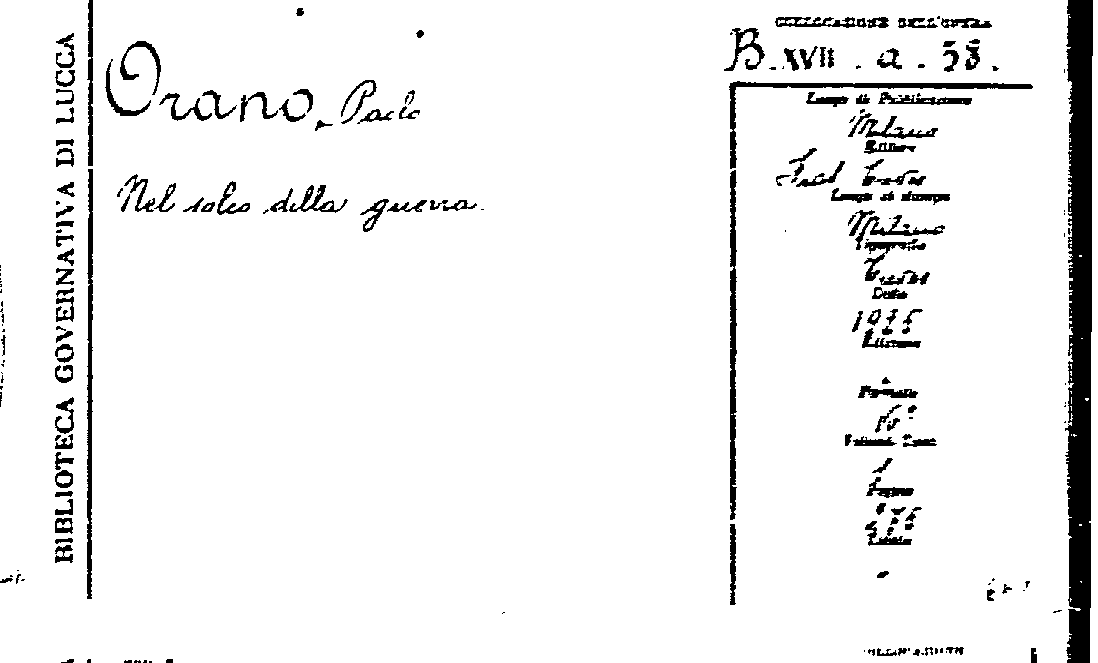 BIBLIOTECA GOVERNATIVA DI LUCCA
Orano, Paolo
Nel solco della guerra.
COLLOCAZIONE DELL'OPERA
B. XVII . a . 58.
Luogo di Pubblicazione
Milano
Editore
Frat. Treves
Luogo di stampa
Milano
Tipografia
Treves
Data
1915
Edizione
Formato
16°
Volumi
1
Pagine